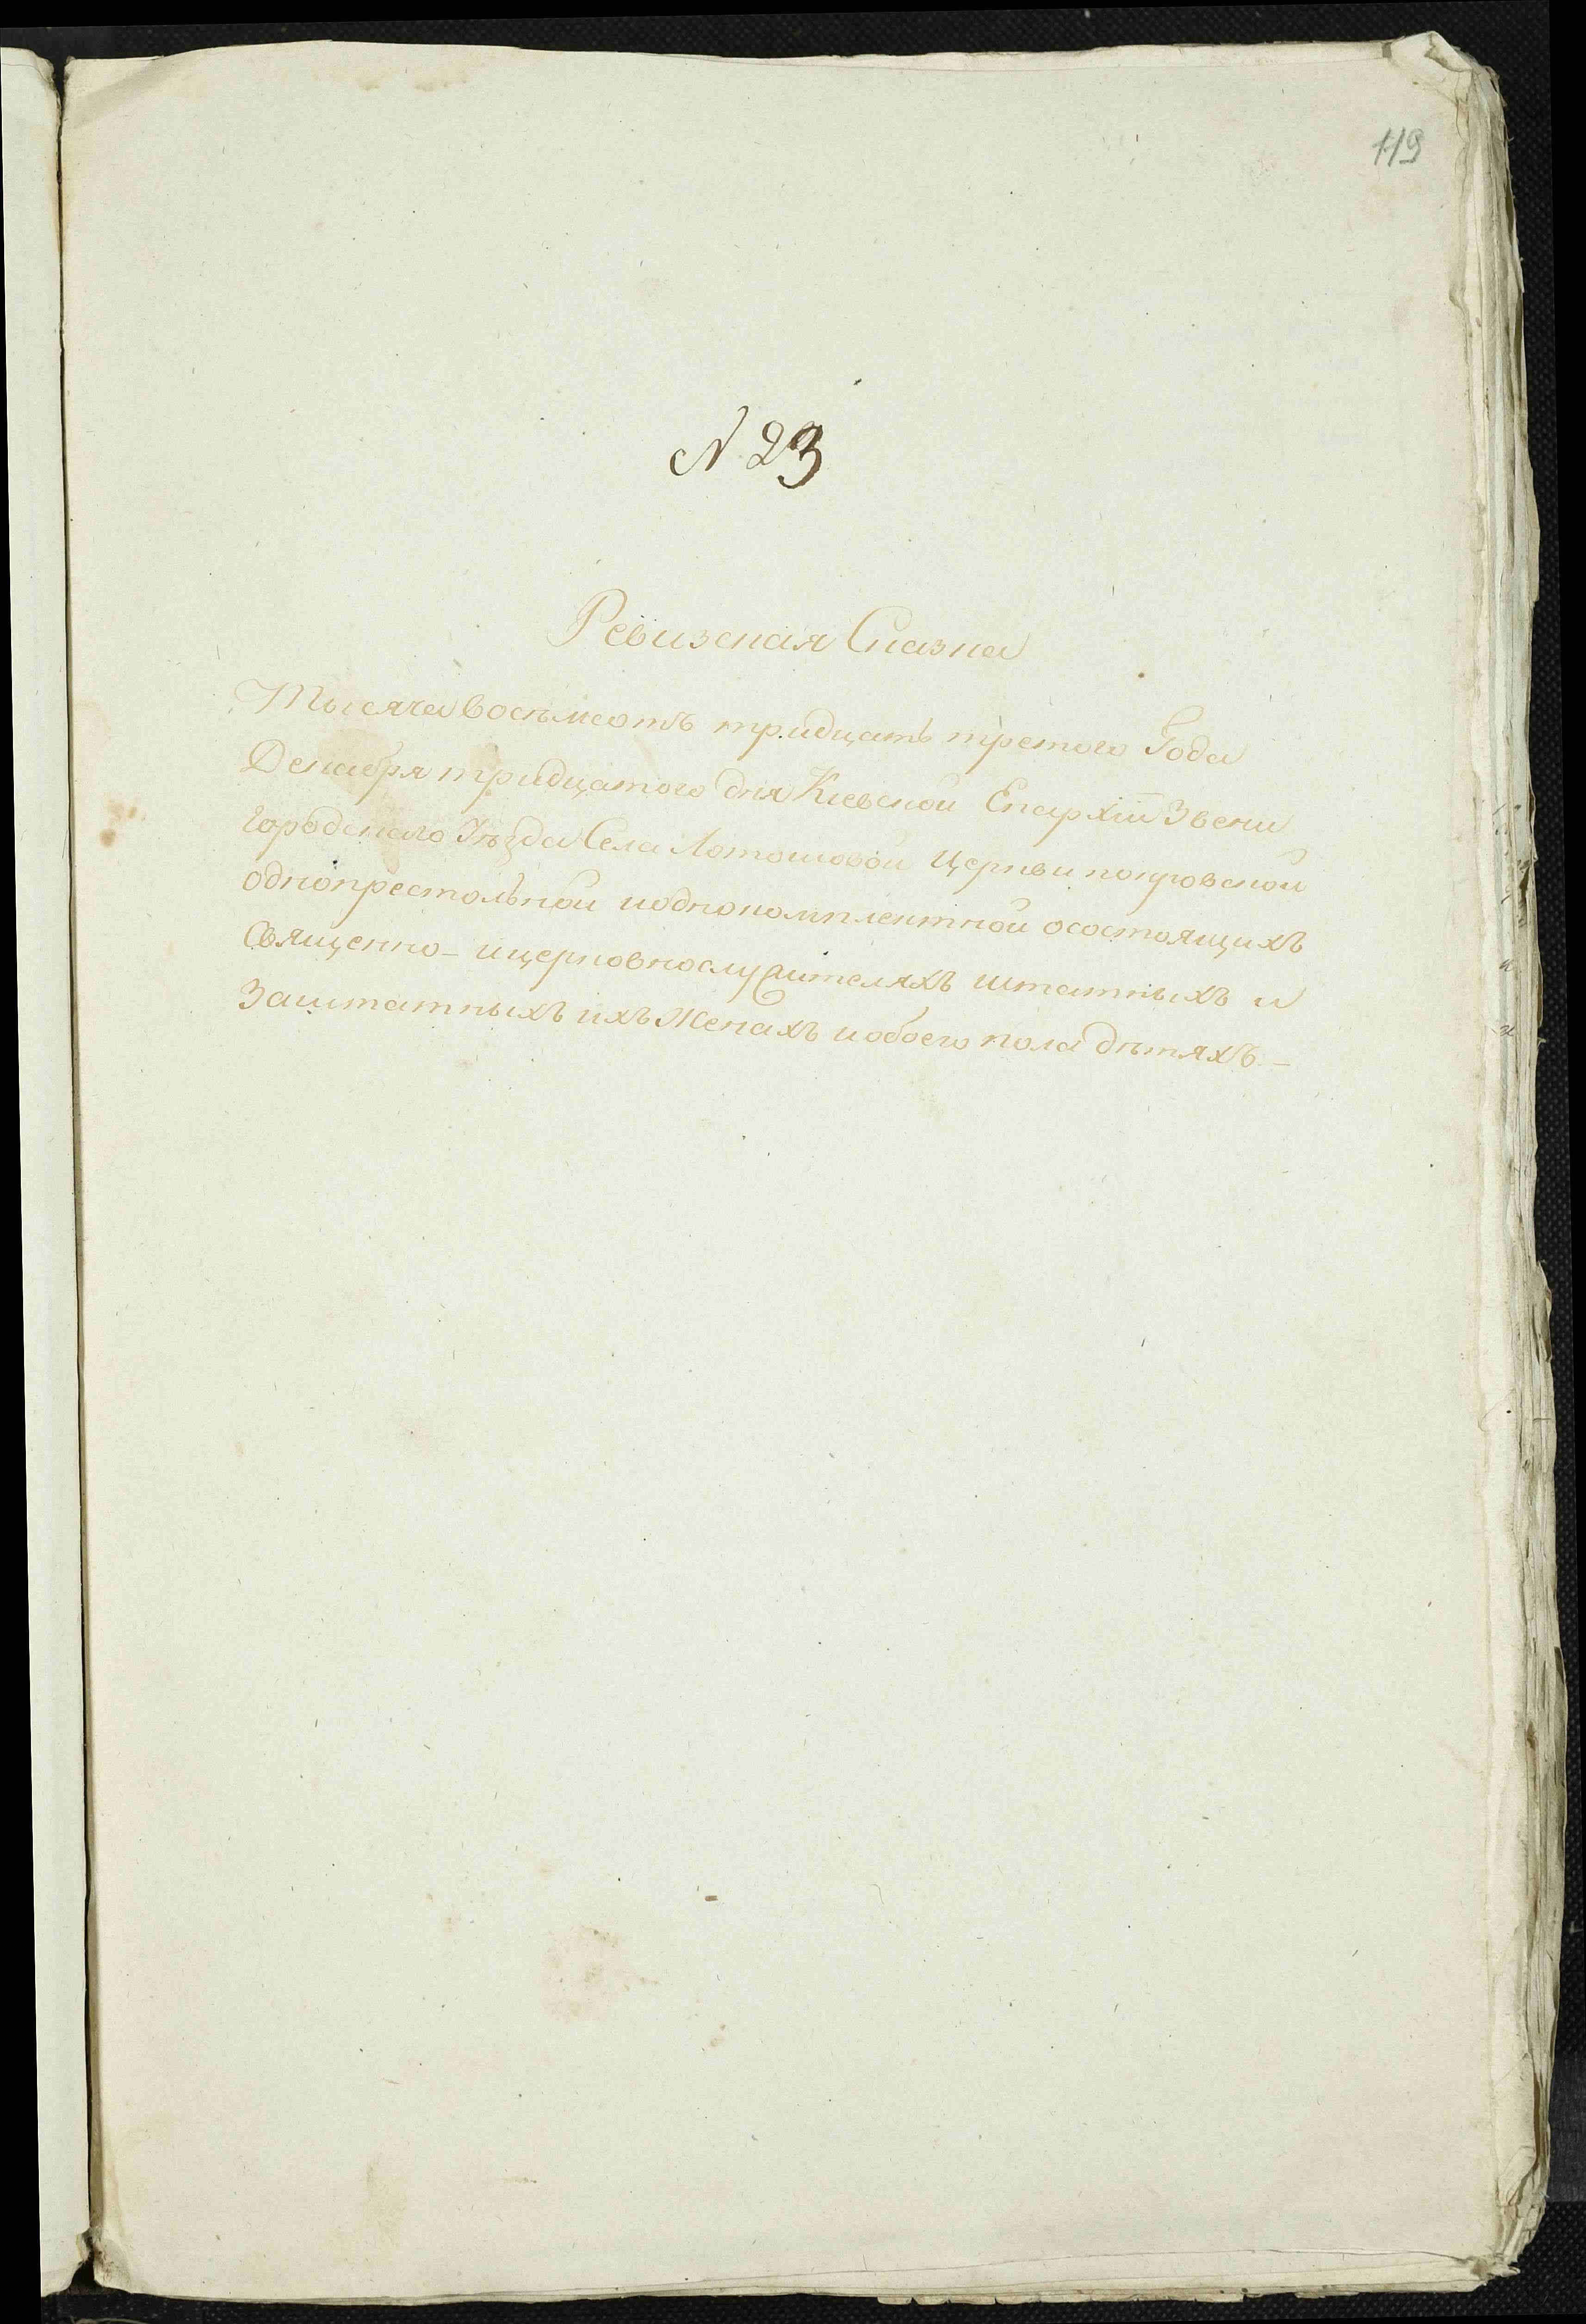 119
N 23
Ревизская Сказка
Тысяча восемьсотъ тридцать третого Года
Декабря тридцатого дня Киевской Епархіи Звени
городскаго Уѣзда Села Лотошовой Церкви покровской
однопрестольной иоднокомплектной осостоящихъ
Священно- ицерковнослужителяхъ штатныхъ и
Заштатныхъ ихъ Женахъ иобоего пола дѣтяхъ -